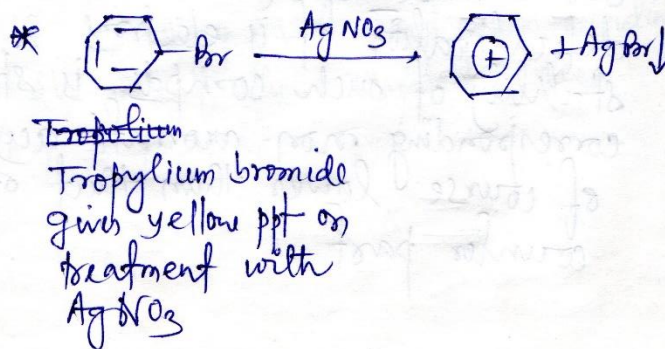 * Br AgNO3 + + AgBr↓
Tropolium
Tropylium bromide
gives yellow ppt on
treatment with
AgNO3